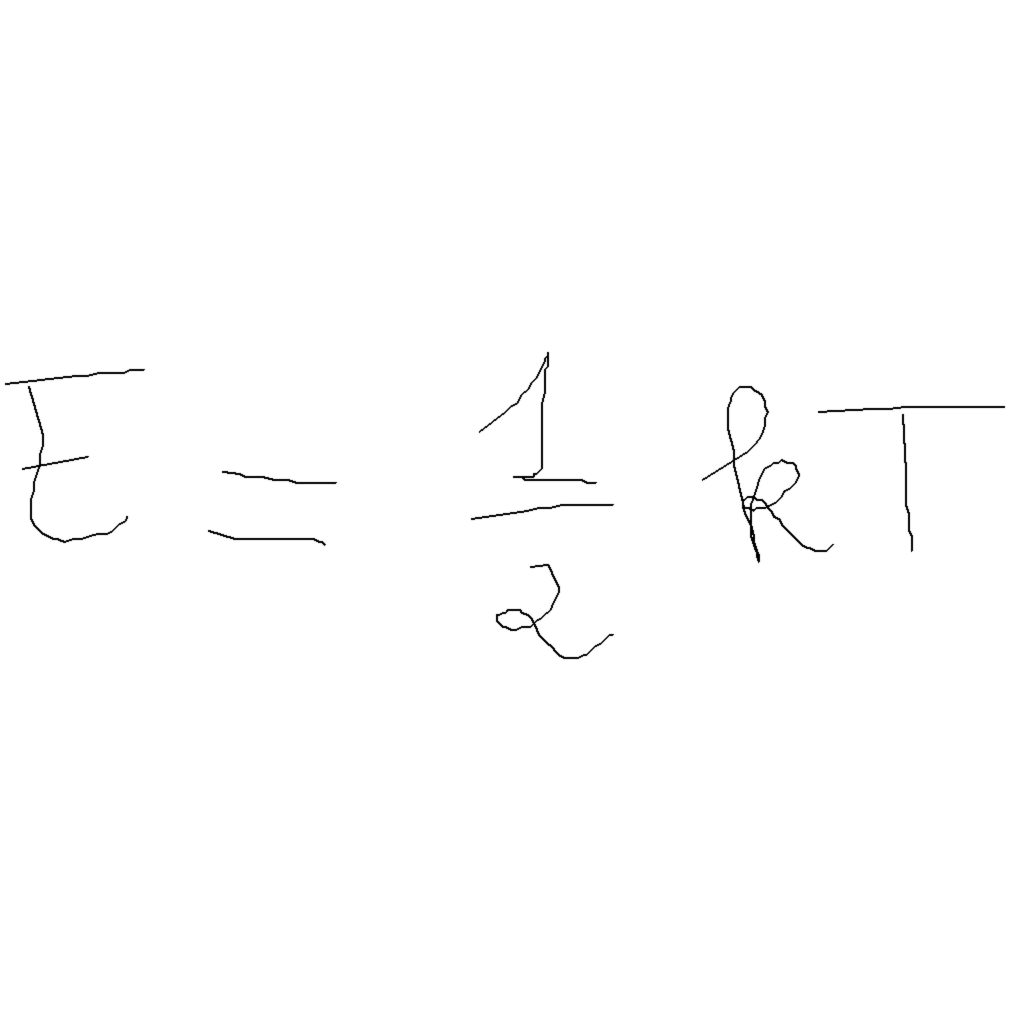 E = \frac{1}{2} kT